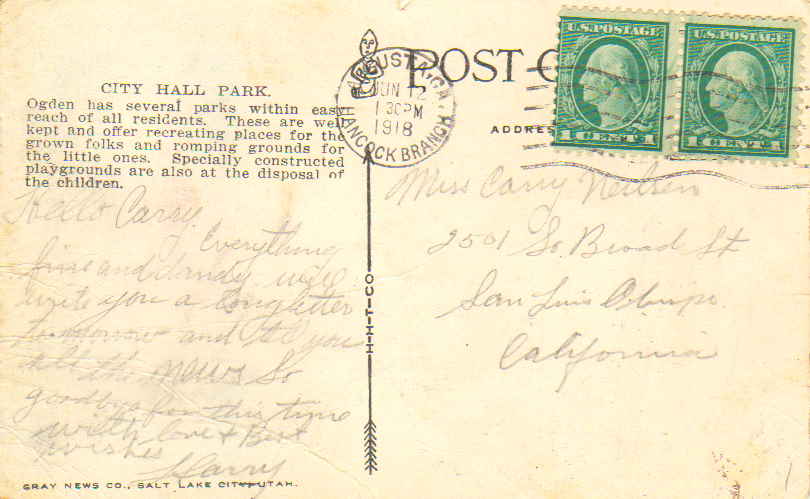 CITY HALL PARK.
Ogden has several parks within easy
reach of all residents. These are well
kept and offer recreating places for the
grown folks and romping grounds for
the little ones. Specially constructed
playgrounds are also at the disposal of
the children.
Hello Carry
Everything
fine and dandy will
write you a long letter
tomorrow and tell you
all the news So
goodbye for this time
with love & Best
wishes
Harry
GRAY NEWS CO., SALT LAKE CITY, UTAH.
H-H-T-CO
POST C
ADDRES
AUGUSTA, GA.
JUN 12
1 30PM
1918
HANCOCK BRANCH
U.S. POSTAGE
1 CENT 1
U.S. POSTAGE
1 CENT 1
Miss Carry Neilsen
2501 So. Broad St
San Luis Obispo.
California